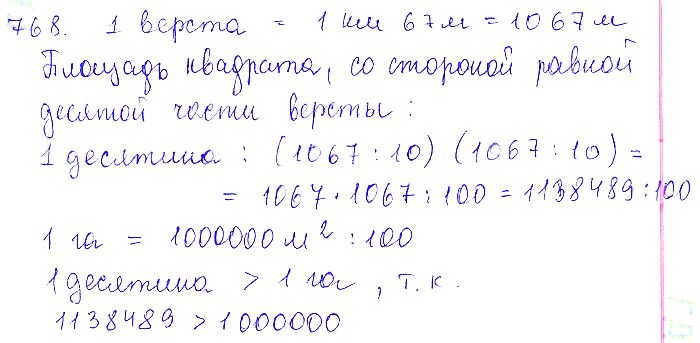 768. 1 верста = 1 км 67м = 1067м
Площадь квадрата, со стороной равной
десятой части версты:
1 десятина : (1067 : 10) (1067 : 10) =
= 1067 · 1067 : 100 = 1138489 : 100
1 га = 1000000 м² : 100
1 десятина > 1 га, т.к.
1138489 > 1000000